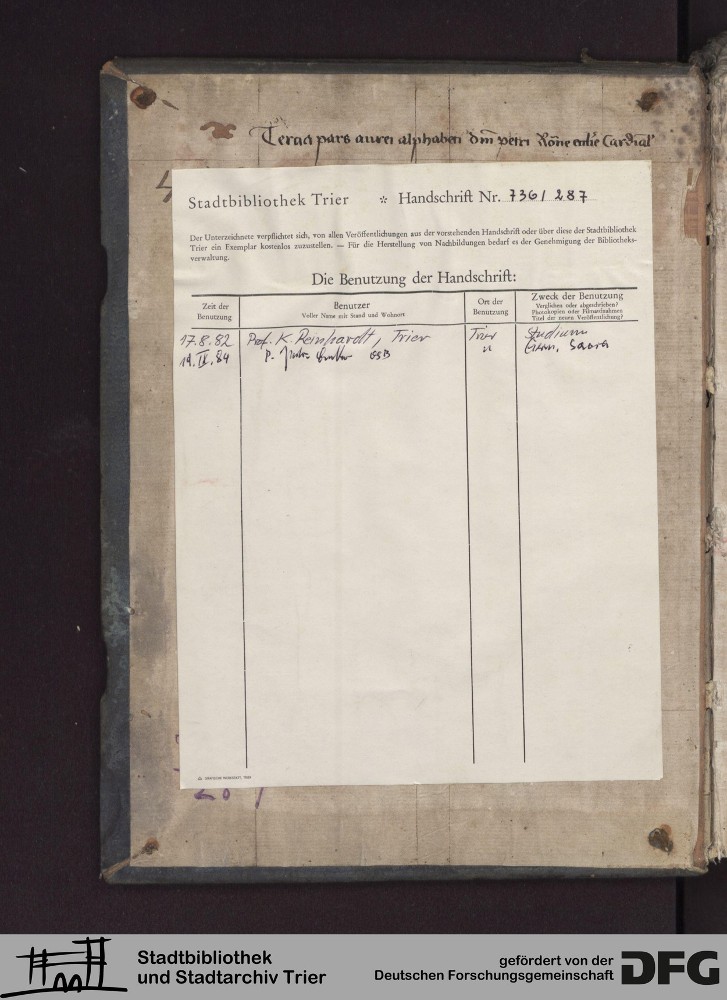 Tercia pars aurei alphabeti dm̄ petri
Stadtbibliothek Trier * Handschrift Nr. 736/287
Der Unterzeichnete verpflichtet sich, von allen Veröffentlichungen aus der vorstehenden Handschrift oder über diese der Stadtbibliothek
Trier ein Exemplar kostenlos zuzustellen. — Für die Herstellung von Nachbildungen bedarf es der Genehmigung der Bibliotheks-
verwaltung.
Die Benutzung der Handschrift:
Zeit der
Benutzung
Benutzer
Voller Name mit Stand und Wohnort
Ort der
Benutzung
Zweck der Benutzung
Verglichen oder abgeschrieben?
Photokopien oder Filmaufnahmen
Titel der neuen Veröffentlichung?
17.8.82 Prof. K. Reinhardt, Trier Trier Studium
19.IX.84 P. OSB "
Stadtbibliothek
und Stadtarchiv Trier
gefördert von der
Deutschen Forschungsgemeinschaft
DFG